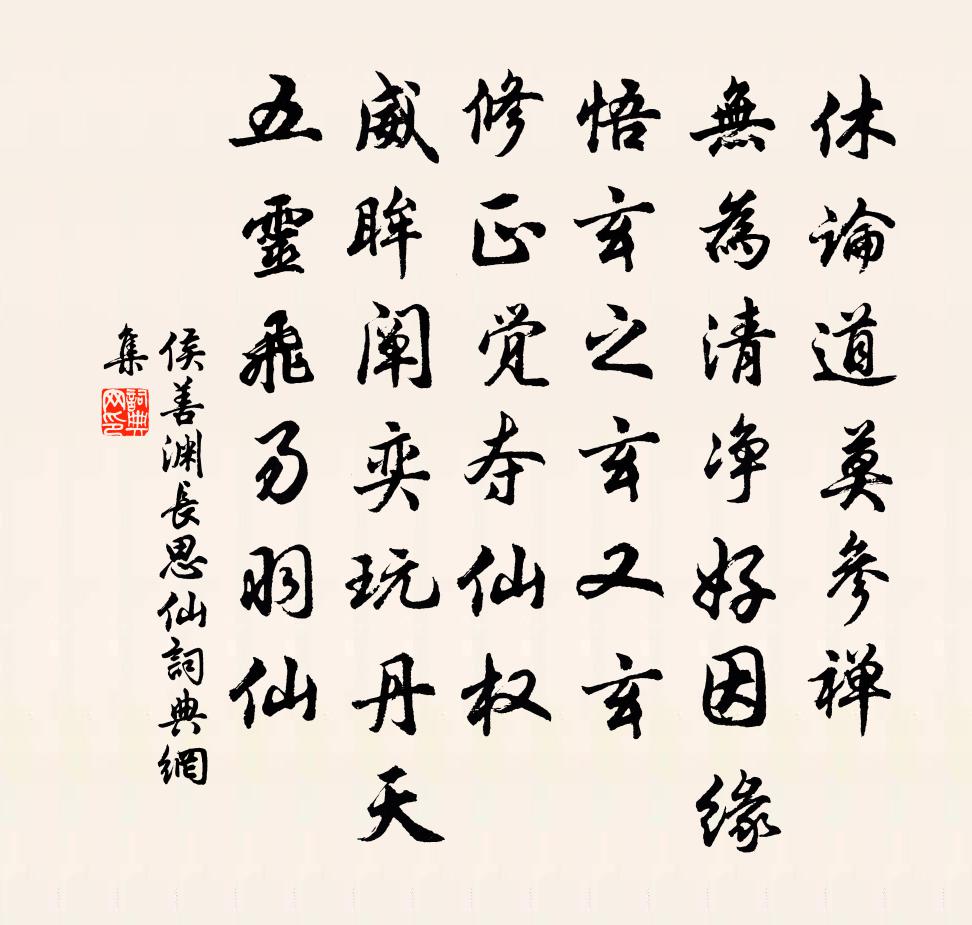 休論道莫參禅
無為清净好因緣
悟玄之玄又玄
修正觉夺仙权
威眸阐奕玩丹天
五靈飛羽仙
侯善渊長思仙詞典網
集
詞典
网印